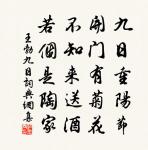 九日重陽節
開門有菊花
不知來送酒
若個是陶家
王勃九日詞典網集